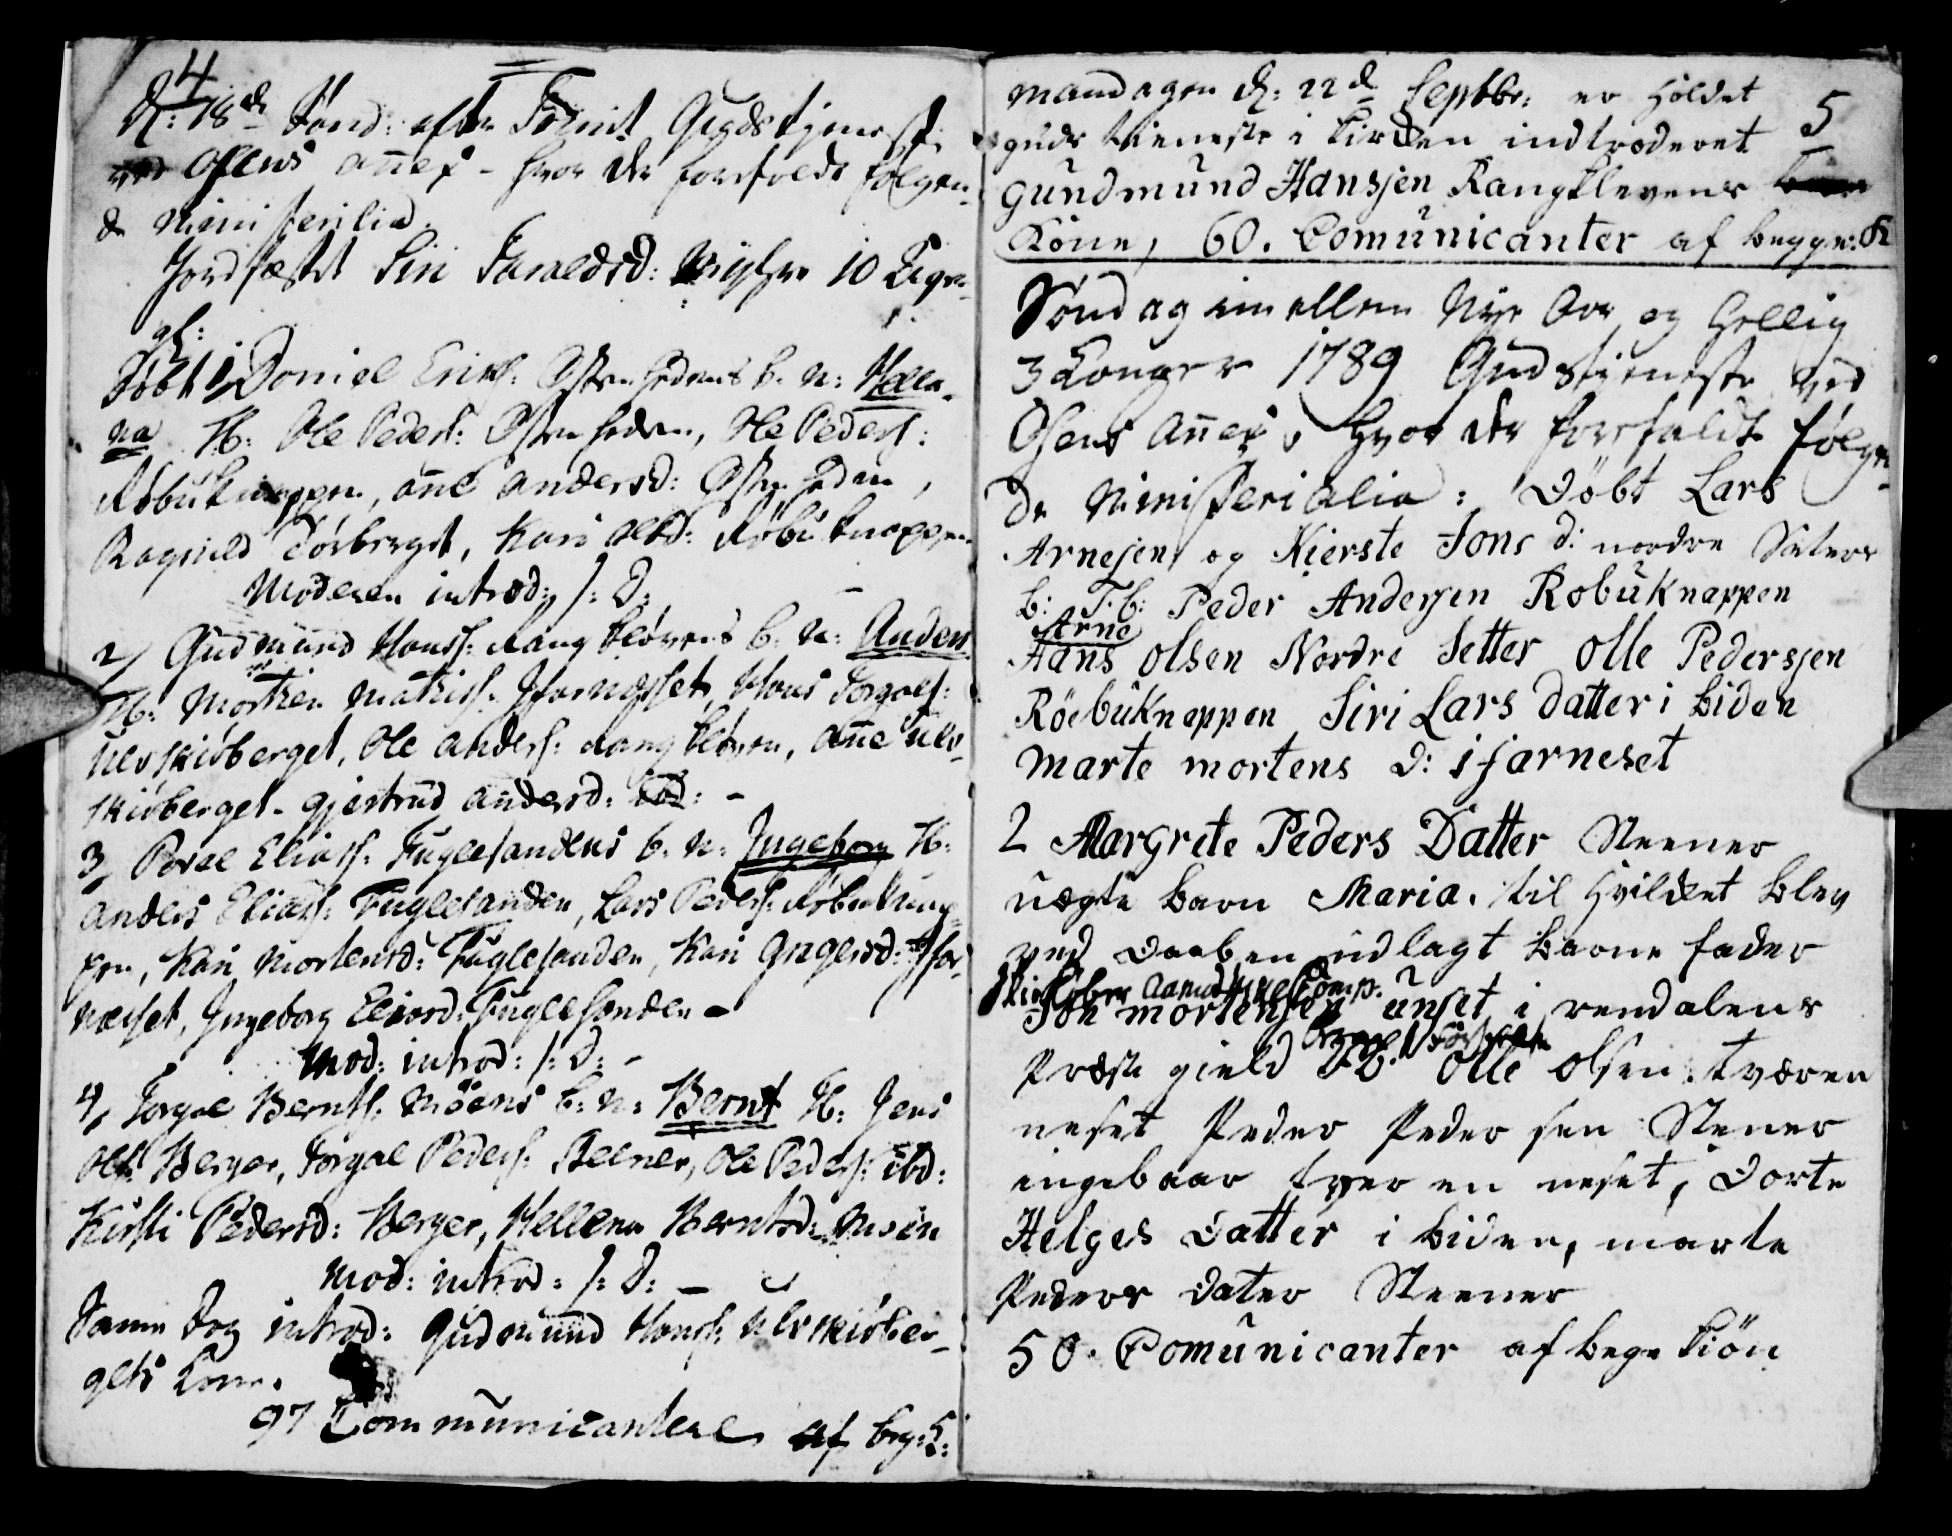 4
D: 18de Sønd: efter Trinit Gudstjeneste
ved Osens añex - hvor der forefoldt følgen-
de Ministerilia.
Jordfæstet Siri Haraldsd: 10 Uger
gl:
Døbt 1, Daniel Erichs: Østenhedens b. N: Hella-
na F: Ole Peders: Østenheden, Ole Peders:
Røbuknappen, añe Andersd: Østenheden,
Ragnild Torberget, Kari Olsd: Røbuknappen
Moderen introd: s: D:
2, Gudmund Hanss: Rangkløvens b. N: Anders
F: Morten Mathiss: Ifarnæsset, Hans Torgals:
Ulvskiøberget, Ole Anders: Rangkløven, Añe Ulv-
skiøberget - Gjertrud Andersd: ibd: -
3, Povel Eliass: Fuglesandens b. N: Ingeborg F:
Anders Eliass: Fuglesanden, Lars Peders: Røbuknap-
pen, Kari Mortensd: Fuglesanden, Kari Ingersd: Ifar-
næsset, Ingeborg Eliasd: Fuglesanden -
Mod: introd: s: D: -
4, Torgal Bernts: Møens b: N: Bernt F: Jens
Ols: Berger, Torgal Peders: Steener, Ole Peders: ibd:
Kirsti Pedersd: Berger, Hellena Berntsd: Moen
Mod: introd: s: D: -
Samme Dag introd: Gudmund Hanss: Ulvskiøber-
gets Kone.
97 Communicantere af beg: K:
5
mandagen d: 22de Septbr: er Holdet
guds tieneste i kirken indtroderet
gundmund Hansjen Rangklevens
Kone, 60. Comunicanter af begge: K
Søndag imellem Nye Aar og Hellig
3 Konger 1789 Gudstjeneste ved
Osens Añex, hvor der forefaldt følgen-
de Ministerialia: Döbt Lars
Arnesen og Kierste Jons d: nordre Säters
b: F.b: Peder Andersen Robuknappen
Arne
Hans olsen Nordre Setter Olle Pedersjen
Röebuknappen Siri Lars Datter i Liden
Marte mortens D: ifarneset
2 Margrete Peders Datter Steener
uægte barn Maria. til Hvilket blev
ved Daaben udlagt barne fader
Jon mortensen unset i rendalens
Præste gield F.b. Olle olsen tværen
neset Peder Pedersen Stener
ingebaar tveren neset, Dorte
Helges Datter i Liden, marte
Peders Dater Steener
50. Comunicanter af bege kiön